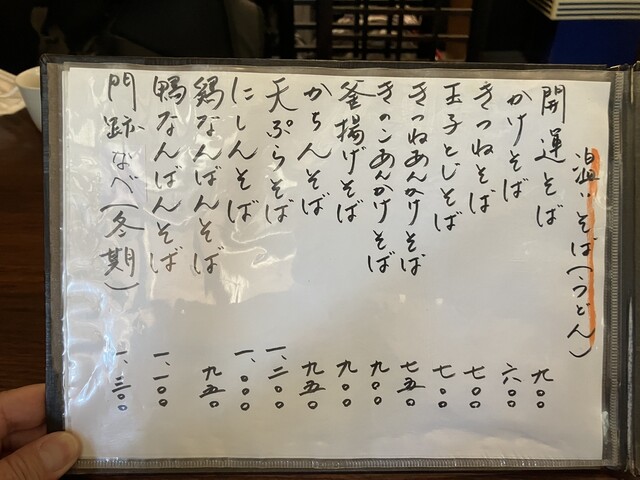 温いそば(うどん)
開運そば 九〇〇
かけそば 六〇〇
きつねそば 七〇〇
玉子とじそば 七〇〇
きつねあんかけそば 七五〇
きのこあんかけそば 九〇〇
釜揚げそば 九〇〇
かちんそば 九五〇
天ぷらそば 一、二〇〇
にしんそば 一、〇〇〇
鶏なんばんそば 九五〇
鴨なんばんそば 一、一〇〇
門跡なべ(冬期) 一、三〇〇